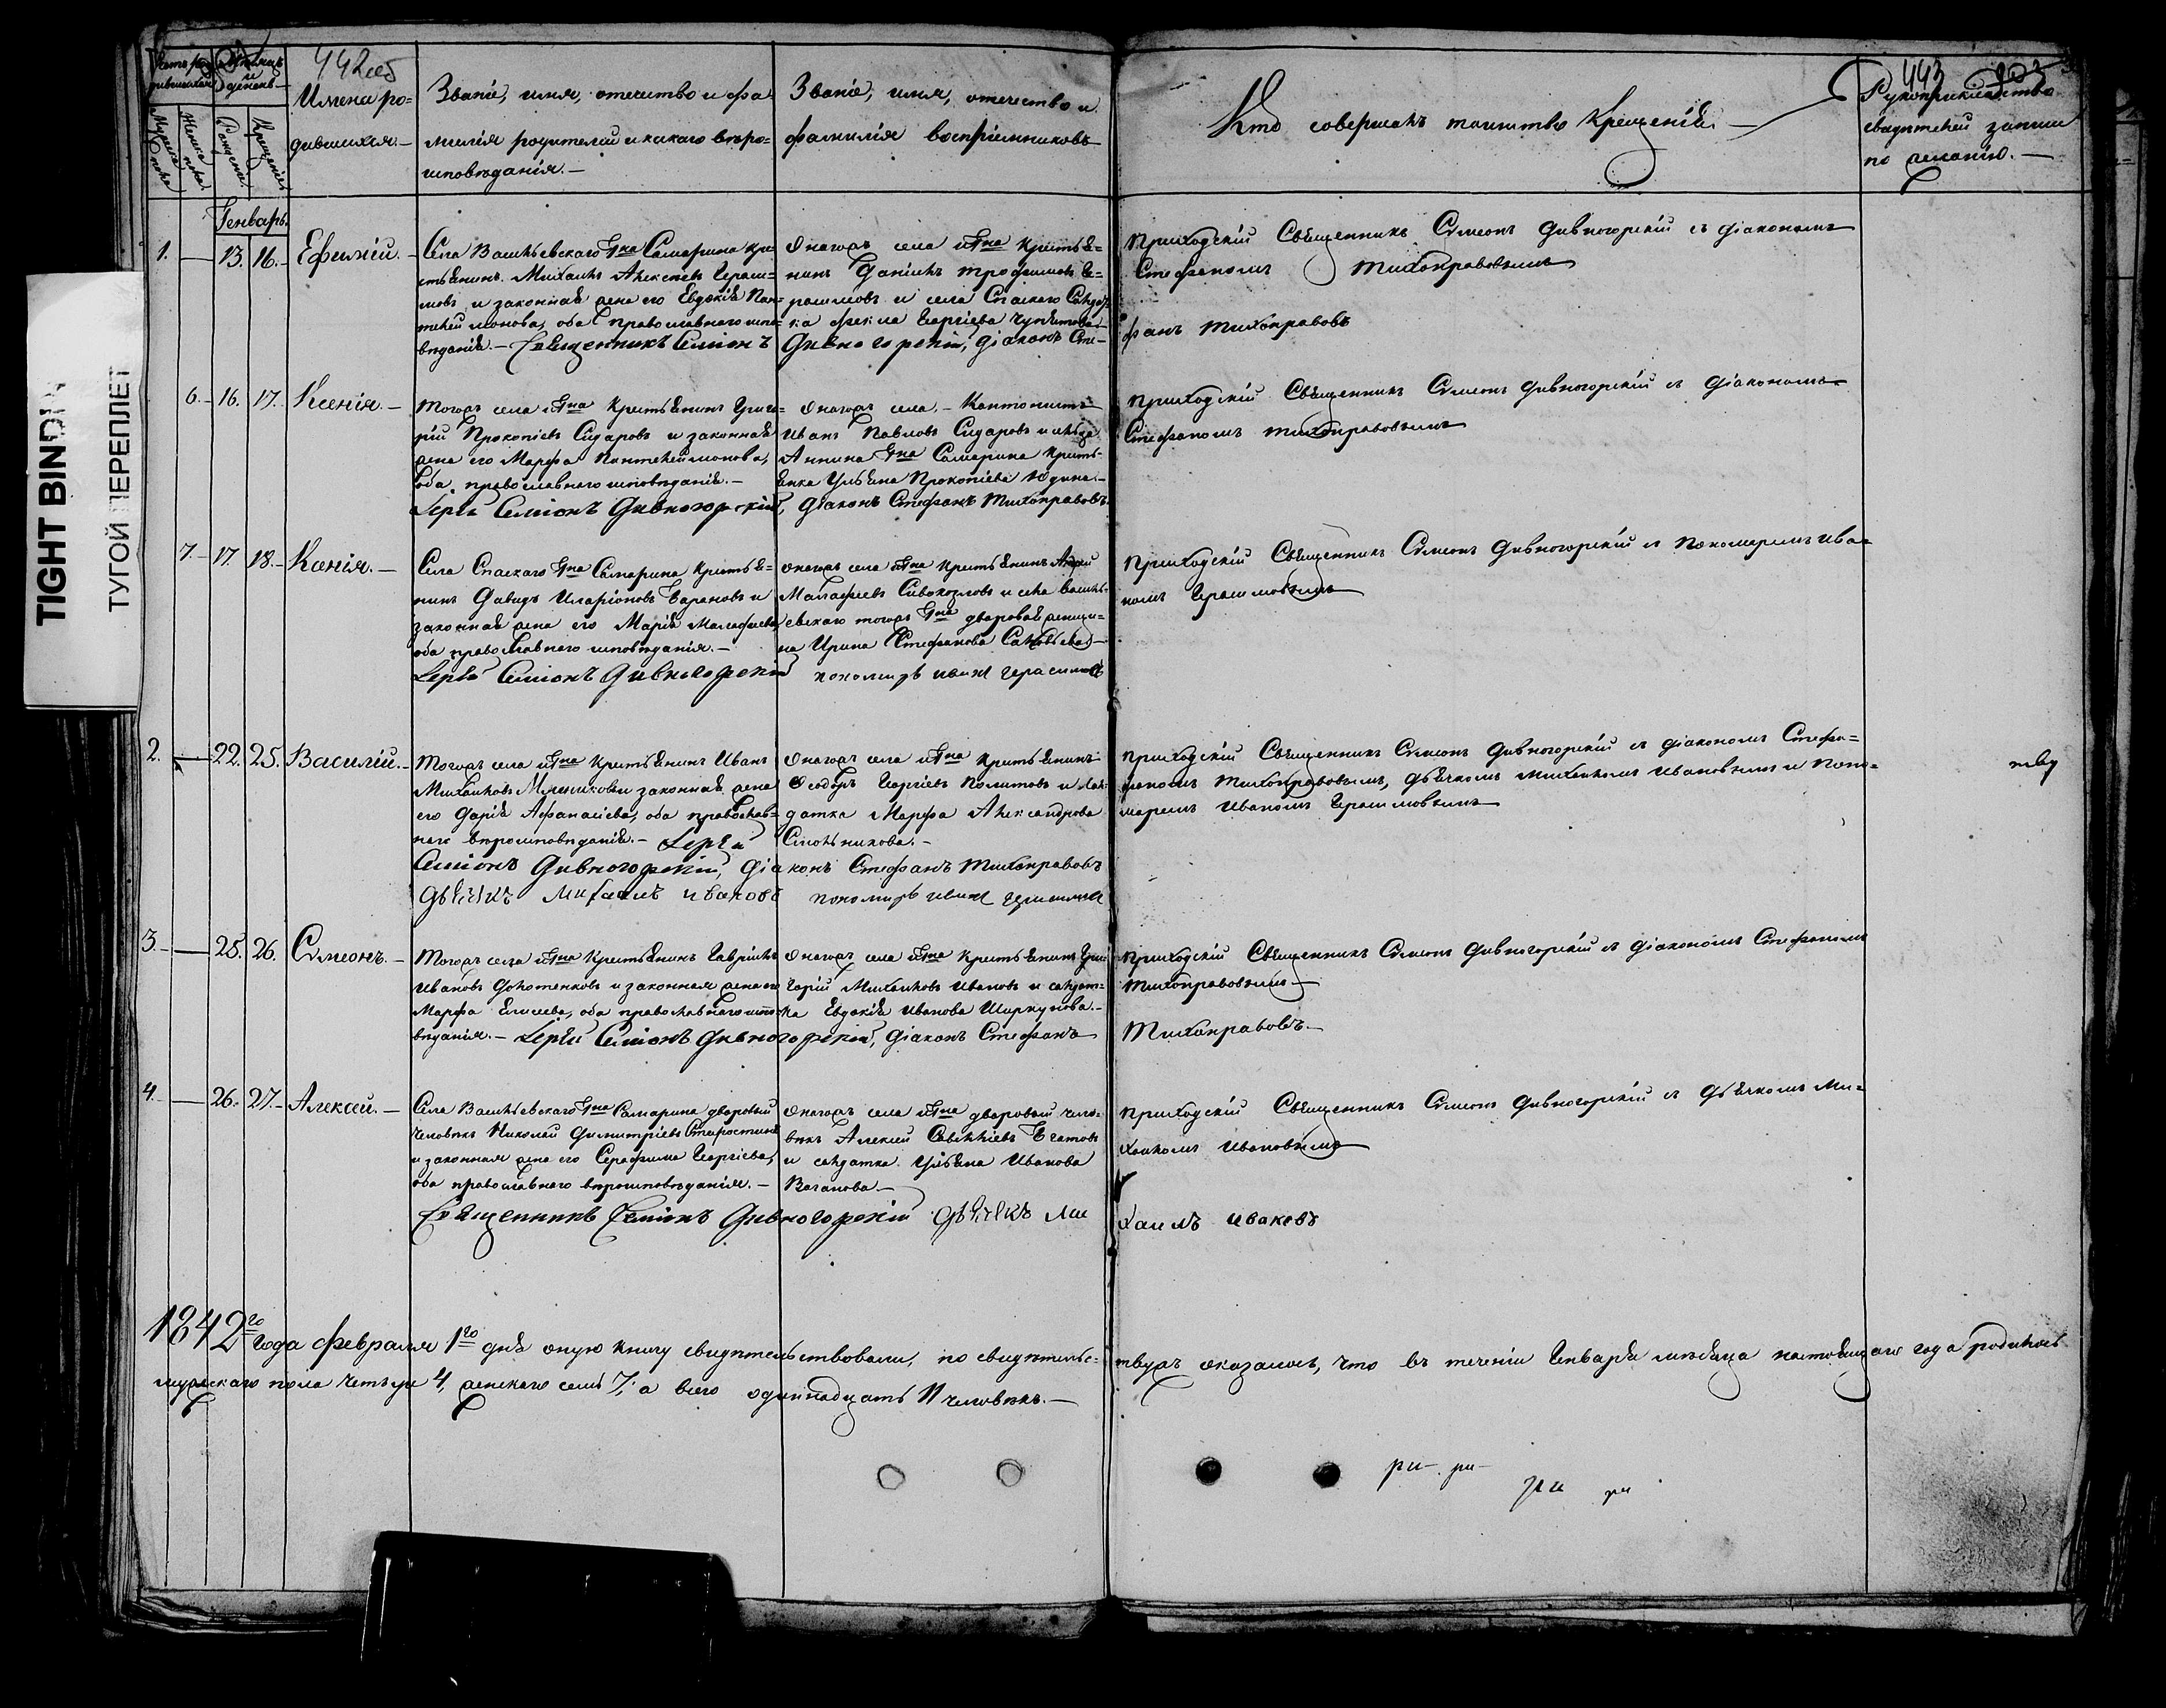 TIGHT BINDING
ТУГОЙ ПЕРЕПЛЕТ
442об
443
Счетъ родившихся
Мѣсяцъ и день
Мужеска пола
Женска пола
Рожденія
Крещенія
Имена родившихся.—
Званіе, имя, отечество и фа-
милія родителей и какаго вѣро-
исповѣданія.—
Званіе, имя, отечество и
фамилія воспріемниковъ
Кто совершалъ таинство Крещенія.—
Рукоприкладство
свидѣтелей записи
по желанію.—
Генварь.
1. — 13. 16. Ефимій.—
Села Васильевскаго Гна Самарина кре-
стьянинъ Михаилъ Алексѣевъ Гераси-
мовъ и законная жена его Евдокія Пан-
телеймонова, оба православнаго испо-
вѣданія.— Священникъ Симіонъ
Онагожъ села и Гна крестья-
нинъ Даніилъ Трофимовъ Ге-
расимовъ и села Спаскаго Солдат-
ка Фекла Георгіева
Дивногорскій, Діаконъ Сте-
Приходскій Священникъ Симеонъ Дивногорскій съ діакономъ
Стефаномъ Тихонравовымъ
фанъ Тихонравовъ
6. 16. 17. Ксенія.—
Тогожъ села и Гна крестьянинъ Григо-
рій Прокопіевъ Сидаровъ и законная
жена его Марфа Пантелеймонова,
оба православнаго исповѣданія.—
Іерей Симіонъ Дивногорскій,
Онагожъ села.— Кантонистъ
Иванъ Павловъ Сидаровъ и сельца
Аннина Гна Самарина кресть-
янка Ульяна Прокопіева Юдина.—
Діаконъ Стефанъ Тихонравовъ
Приходскій Священникъ Симеонъ Дивногорскій съ Діакономъ
Стефаномъ Тихонравовымъ
7. 17. 18. Ксенія.—
Села Спаскаго Гна Самарина крестья-
нинъ Давидъ Иларіоновъ Барановъ и
законная жена его Марія Малафеева
оба православнаго исповѣданія.—
Іерей Симіонъ Дивногорскій
Онагожъ села и Гна крестьянинъ Андрей
Малафеевъ Сивокозловъ и села Василь-
евскаго тогожъ Гна дворовая женщи-
на Ирина Стефанова
пономарь иванъ герасимовъ
Приходскій Священникъ Симеонъ Дивногорскій съ Пономаремъ Ива-
номъ Герасимовымъ
2. — 22. 25. Василій.—
Тогожъ села и Гна крестьянинъ Иванъ
Михаиловъ Мельниковъ и законная жена
его Дарія Афанасіева, оба православ-
наго вѣроисповѣданія.— Іерей
Симіонъ Дивногорскій, Діа
Дьячекъ Михаилъ ивановъ
Онагожъ села и Гна крестьянинъ
Феодоръ Георгіевъ Политовъ и сол-
датка Марфа Александрова
Стольникова.—
конъ Стефанъ Тихонравовъ
пономарь иванъ герасимовъ
Приходскій Священникъ Симеонъ Дивногорскій съ діакономъ Стефа-
номъ Тихонравовымъ, Дьячкомъ Михаиломъ Ивановымъ и Поно-
маремъ Иваномъ Герасимовымъ
3. — 25. 26. Симеонъ.—
Тогожъ села и Гна крестьянинъ Гавріилъ
Ивановъ Долотенковъ и законная жена его
Марфа Елисеева, оба православнаго испо-
вѣданія.— Іерей Симіонъ Дивно
Онагожъ села и Гна крестьянинъ Гри-
горій Михаиловъ Ивановъ и солдат-
ка Евдокія Иванова Шаркунова.—
горскій, Діаконъ Стефанъ
Приходскій Священникъ Симеонъ Дивногорскій съ діакономъ Стефаномъ
Тихонравовымъ
Тихонравовъ.—
4. — 26. 27. Алексѣй.—
Села Васильевскаго Гна Самарина дворовый
человѣкъ Николай Димитріевъ Старостинъ
и законная жена его Серафима Георгіева,
оба православнаго вѣроисповѣданія.—
Священникъ Симіонъ Дивногорскій
Онагожъ села и Гна дворовый чело-
вѣкъ Алексѣй Савельіевъ
и солдатка Ульяна Иванова
Ваганова.—
Дьячекъ Ми
Приходскій Священникъ Симеонъ Дивногорскій съ Дьячкомъ Ми-
хаиломъ Ивановымъ
хаилъ ивановъ
1842го года февраля 1го дня оную книгу свидѣтельствовали, по свидѣтельс- твужъ оказалось, что въ теченіи Генваря мѣсяца настоящаго года родилось
мужскаго пола четыри 4, женскаго семь 7, а всего одиннадцать 11 человѣкъ.—
ри-. ри-
ри ри